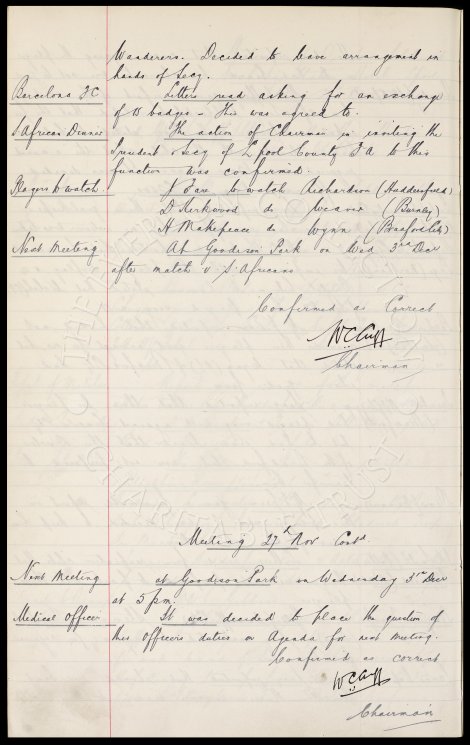 Wanderers. Decided to leave arrangement in
hands of Secy.
Barcelona F C Letters read asking for an exchange
of 15 badges - This was agreed to.
S African Dinner The action of Chairman in inviting the
President & Secy of L'pool County F A to this
function was confirmed.
Players to watch J Fare to watch Richardson (Huddersfield)
D Kirkwood do Weaver (Burnley)
H Makepeace do Wynn (Bradford City)
Next Meeting At Goodison Park on Wed 3rd Decr
after match v S. Africans
Confirmed as Correct
W C Cuff
Chairman
Meeting 27th Nov Contd
Next Meeting at Goodison Park on Wednesday 3rd Decr
at 5 pm.
Medical Officer It was decided to place the question of
this Officers duties on Agenda for next meeting.
Confirmed as correct
W C Cuff
Chairman
THE
CHARITABLE TRUST